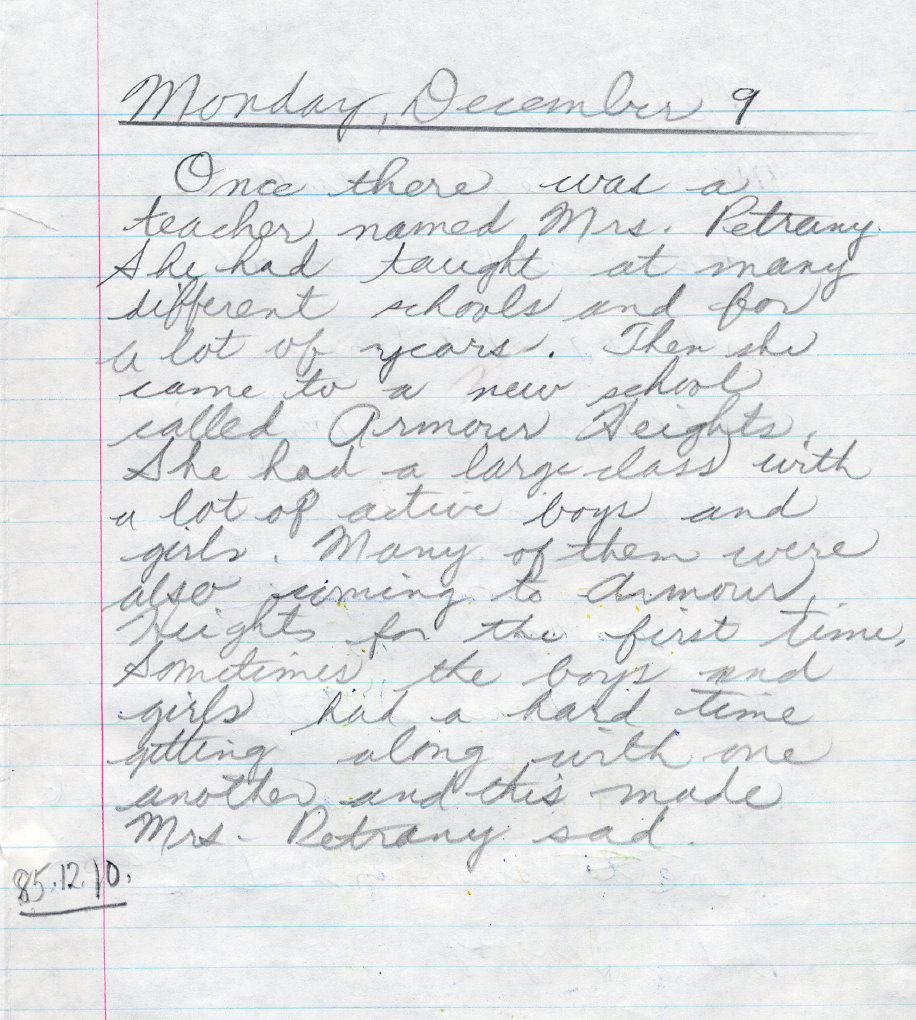 Monday, December 9
Once there was a
teacher named Mrs. Petrany.
She had taught at many
different schools and for
a lot of years. Then she
came to a new school
called Armour Heights.
She had a large class with
a lot of active boys and
girls. Many of them were
also coming to Armour
Heights for the first time.
Sometimes the boys and
girls had a hard time
getting along with one
another and this made
Mrs. Petrany sad.
85.12.10.